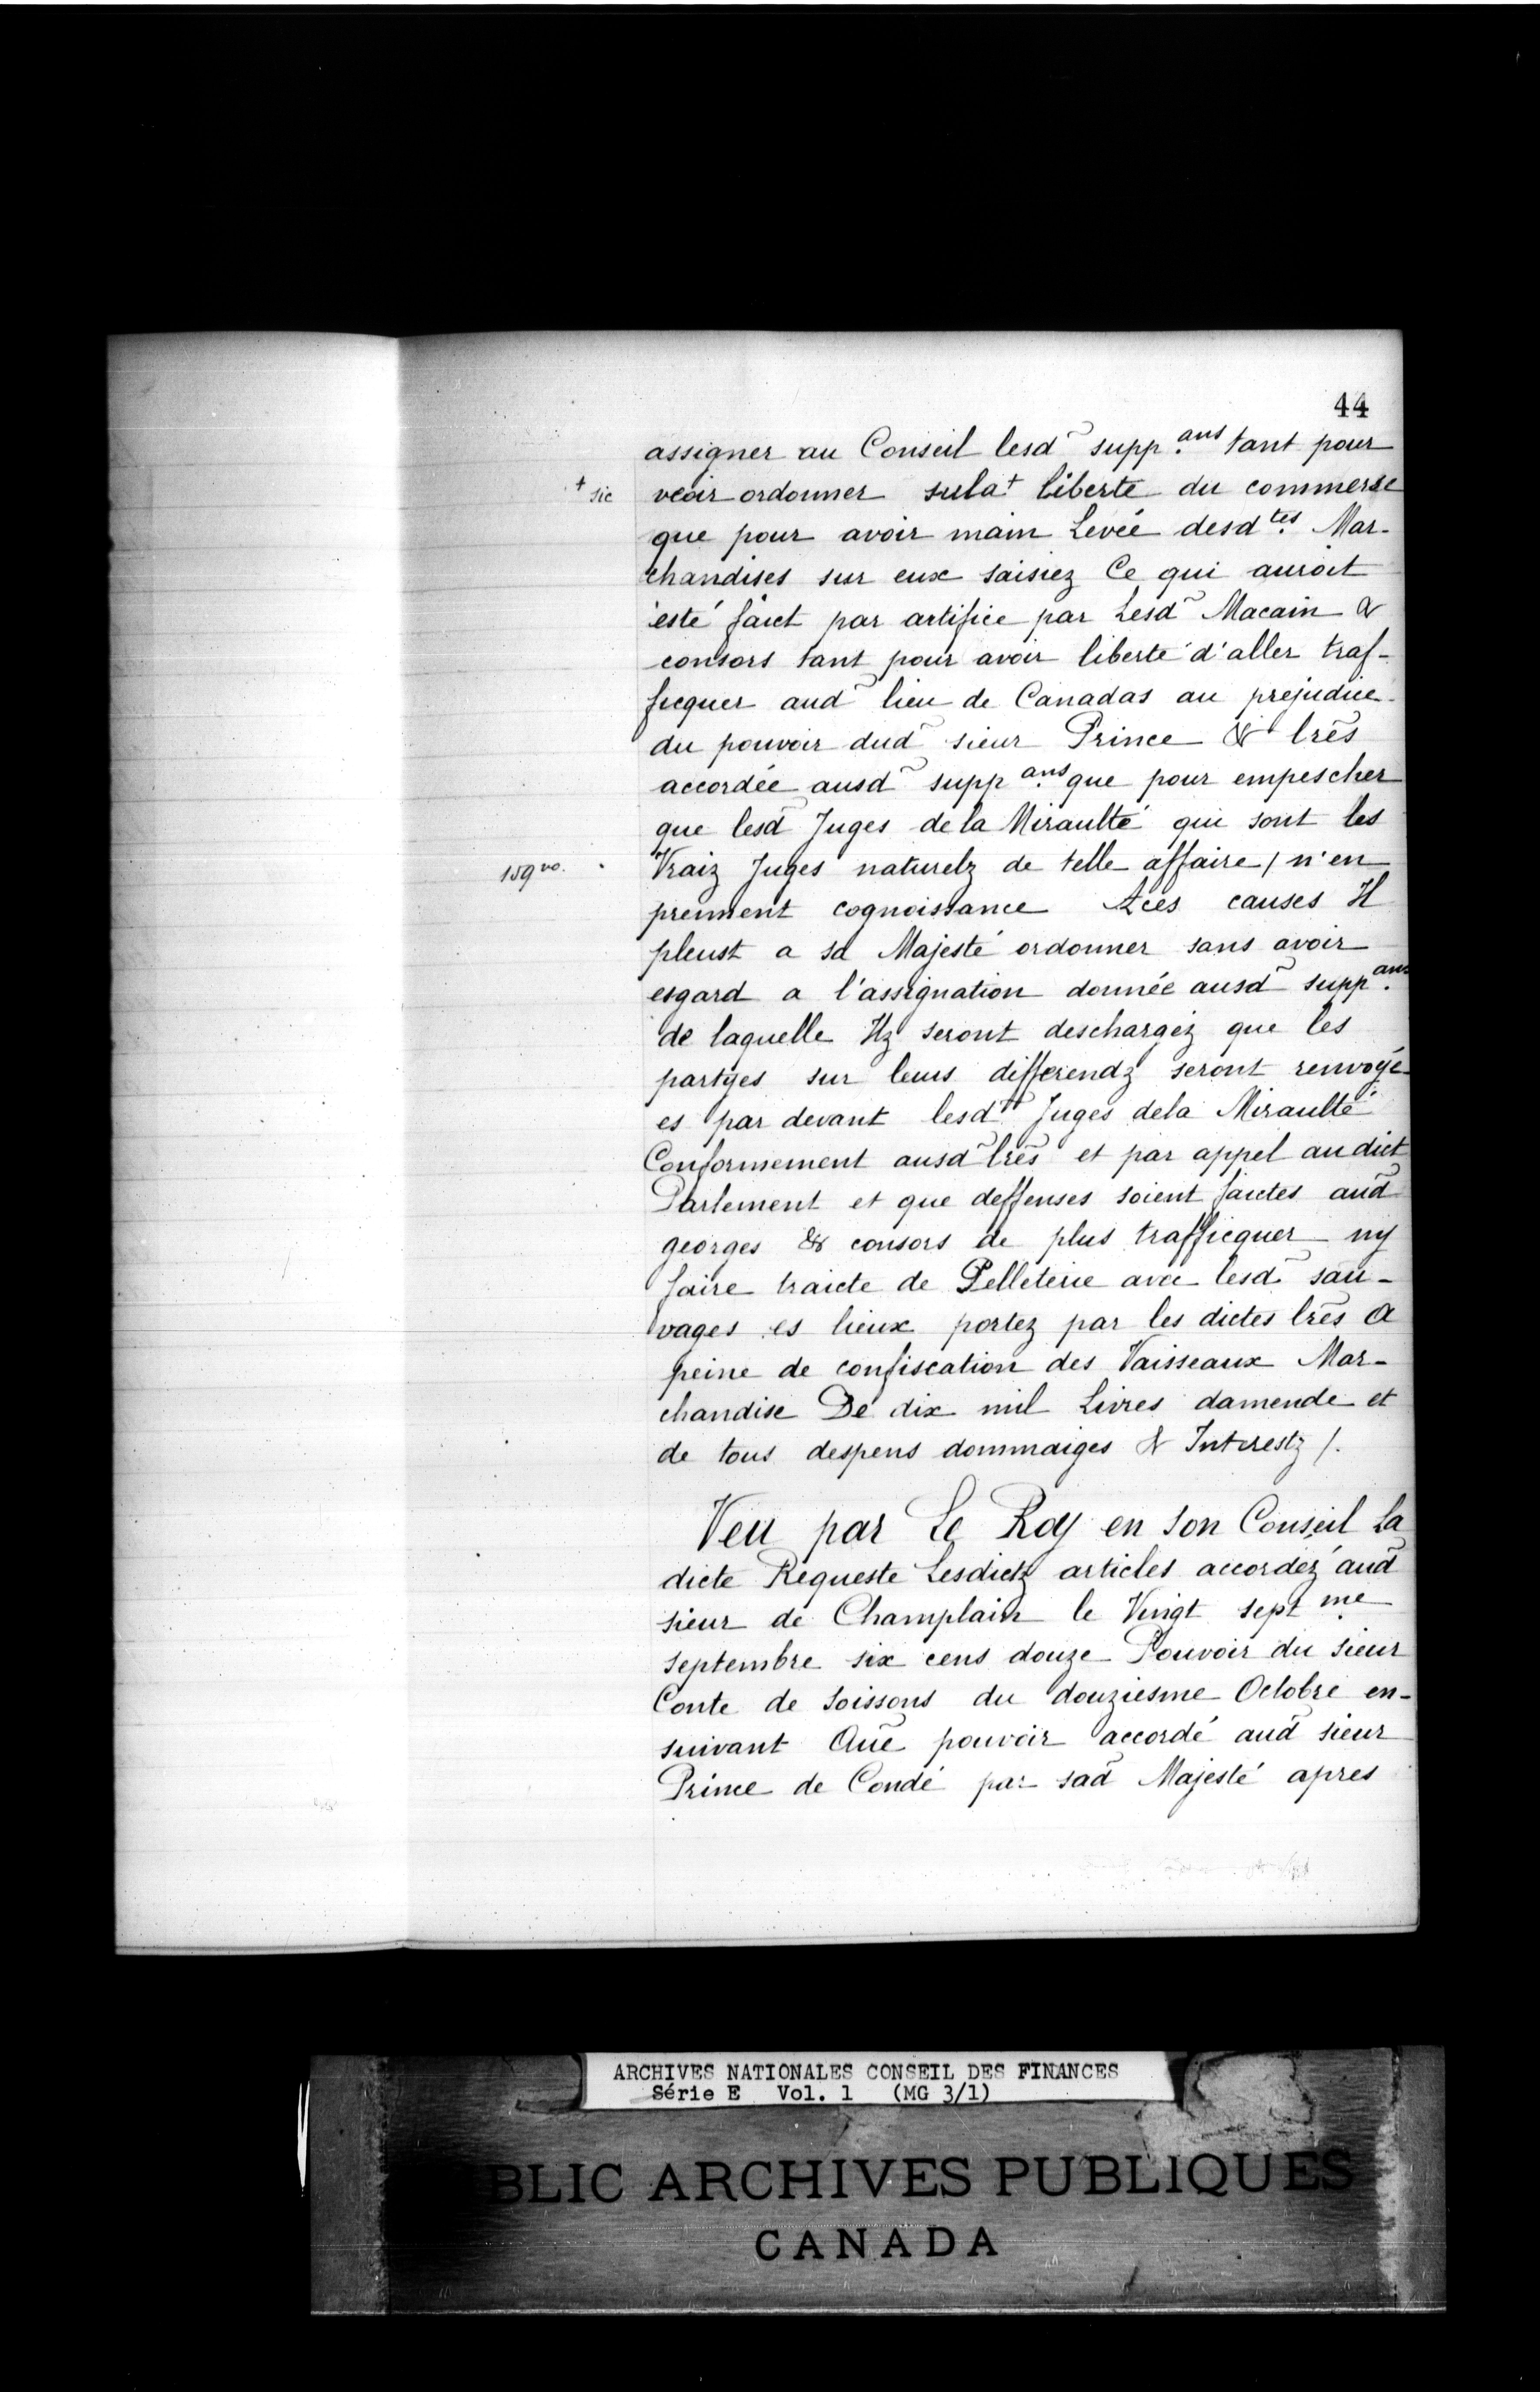 44
assigner au Conseil lesd~ supp.ans tant pour
+ sic veoir ordonner sula+ liberté du commerse
que pour avoir main Levée desd.tes Mar-
chandises sur eux saisiez Ce qui auroit
esté faict par artifice par Lesd~ Macain &
consors tant pour avoir liberté d'aller traf-
ficquer aud~ lieu de Canadas au prejudice
du pouvoir dud~ sieur Prince & lr̃es
accordée ausd~ supp.ans que pour empescher
que lesd~ Juges de la Miraulté qui sont les
159 vo. Vraiz Juges naturelz de telle affaire / n'en
prennent cognoissance Aces causes Il
pleust a sa Majesté ordonner sans avoir
esgard a l'assignation donnée ausd~ supp.ans
de laquelle Ilz seront deschargéz que les
partyes sur leurs differendz seront renvoyé-
es par devant lesd~ Juges dela Miraulté
Conformement ausd~ lr̃es et par appel au dict
Parlement et que deffenses soient faictes aud~
georges & consors de plus trafficquer ny
faire traicte de Pelleterie avec lesd~ sau-
vages es lieux portez par les dictes lr̃es a
peine de confiscation des Vaisseaux Mar-
chandise De dix mil Livres damende et
de tous despens dommaiges & Interestz /.
Veu par Le Roy en son Conseil La
dicte Requeste Lesdictz articles accordéz aud~
sieur de Champlain le Vingt sept me
septembre six cens douze Pouvoir du sieur
Conte de Soissons du douziesme Octobre en-
suivant Auẽ pouvoir accordé aud~ sieur
Prince de Condé par sad~ Majesté apres
ARCHIVES NATIONALES CONSEIL DES FINANCES
Série E Vol. 1 (MG 3/1)
BLIC ARCHIVES PUBLIQUES
CANADA